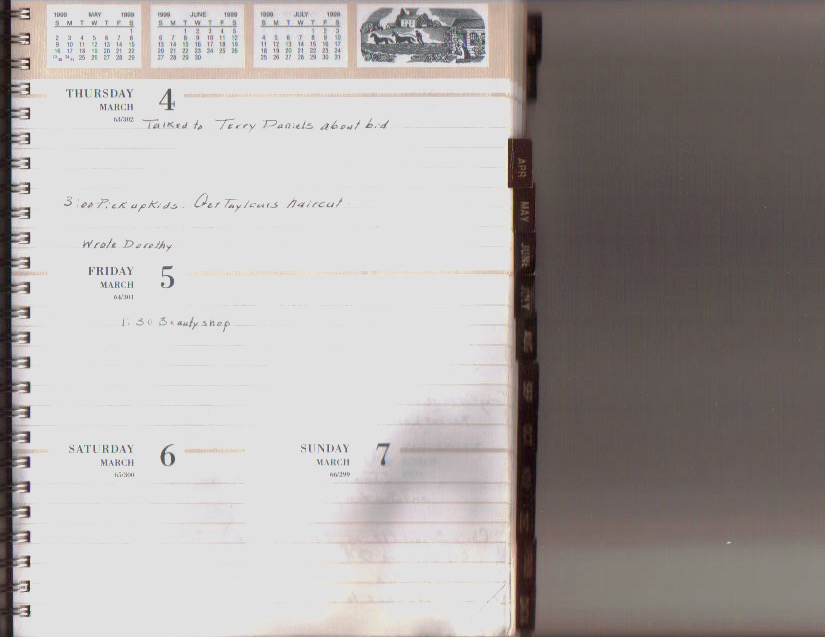 1999 MAY 1999
S M T W T F S
1
2 3 4 5 6 7 8
9 10 11 12 13 14 15
16 17 18 19 20 21 22
23/30 24/31 25 26 27 28 29
1999 JUNE 1999
S M T W T F S
1 2 3 4 5
6 7 8 9 10 11 12
13 14 15 16 17 18 19
20 21 22 23 24 25 26
27 28 29 30
1999 JULY 1999
S M T W T F S
1 2 3
4 5 6 7 8 9 10
11 12 13 14 15 16 17
18 19 20 21 22 23 24
25 26 27 28 29 30 31
THURSDAY 4
MARCH
63/302
Talked to Terry Daniels about bid
3:00 Pick up Kids. Get Taylour's haircut
Wrote Dorothy
FRIDAY 5
MARCH
64/301
1:30 Beauty shop
SATURDAY 6
MARCH
65/300
SUNDAY 7
MARCH
66/299
APR
MAY
JUNE
JULY
AUG
SEP
OCT